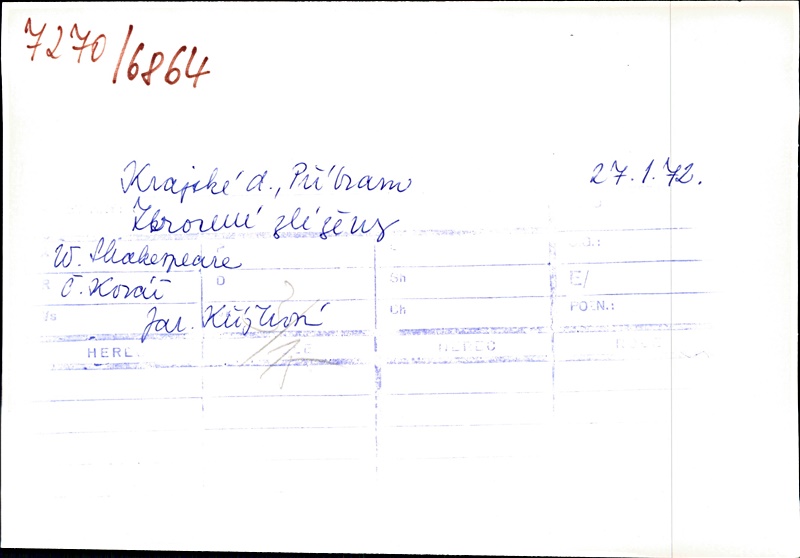 7270/6864
Krajské d., Příbram 27.1.72.
Zkrocení zlé ženy
W. Shakespeare
R Č. Kovář D Sh E/
Jar. Křížková Ch POZN.:
HEREC HEREC